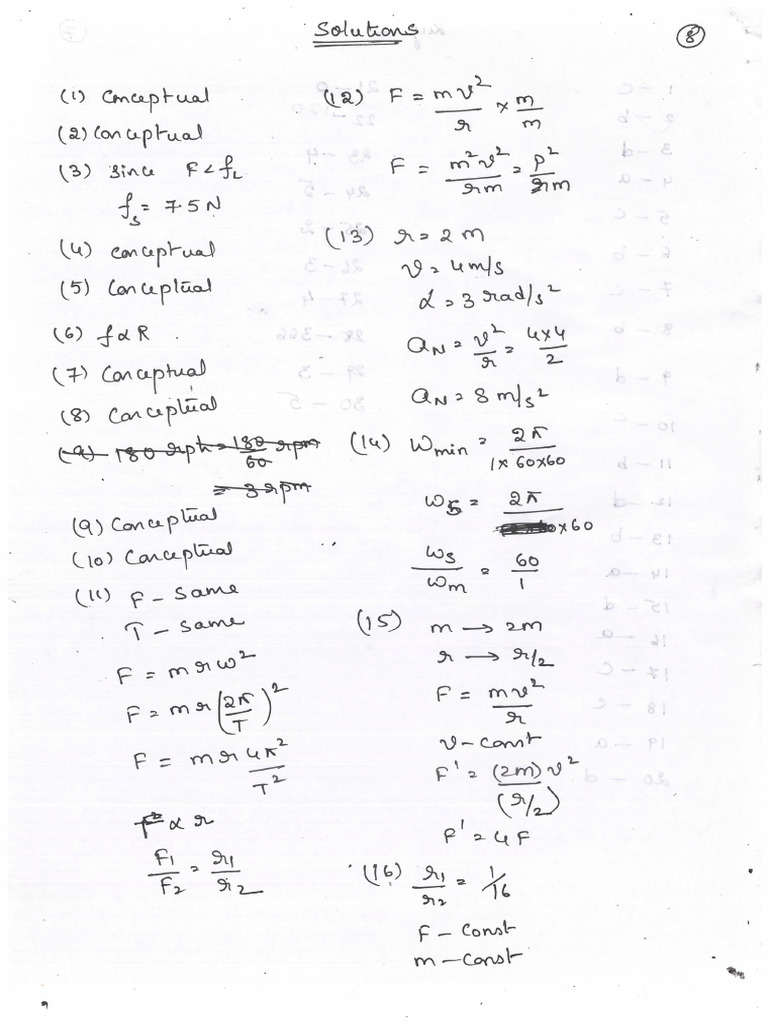 Solutions
8
(1) Conceptual
(2) Conceptual
(3) Since F < f_L
f_s = 7.5 N
(4) conceptual
(5) Conceptual
(6) f ∝ R .
(7) Conceptual
(8) Conceptual
(9) 180 rph = 180/60 rpm
= 3 rpm
(9) Conceptual
(10) Conceptual
(11) F - Same
T - Same
F = mrω²
F = mr(2π/T)²
F = mr 4π²/T²
F ∝ r
F₁/F₂ = r₁/r₂
(12) F = mv²/r × m/m
F = m²v²/rm = p²/rm
(13) r = 2 m
v = 4 m/s
α = 3 rad/s²
a_N = v²/r = 4x4/2
a_N = 8 m/s²
(14) ω_min = 2π/1x60x60
ω_s = 2π/x60
ω_s/ω_m = 60/1
(15) m → 2m
r → r/2
F = mv²/r
v - const
F' = (2m)v²/(r/2)
F' = 4F
(16) r₁/r₂ = 1/16
F - Const
m - const